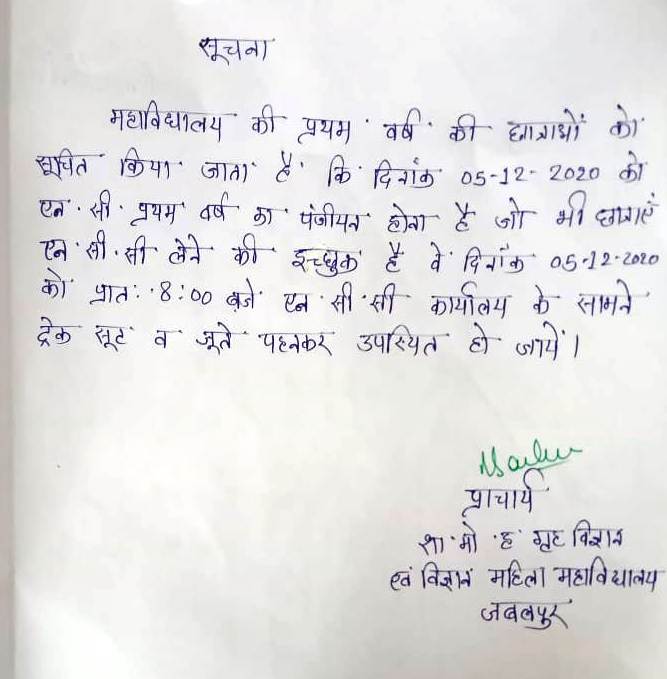 सूचना
महाविद्यालय की प्रथम वर्ष की छात्राओं को
सूचित किया जाता है कि दिनांक 05-12-2020 को
एन·सी· प्रथम वर्ष का पंजीयन होना है जो भी छात्राएँ
एन·सी·सी लेने की इच्छुक है वे दिनाँक 05-12-2020
को प्रात: 8:00 बजे एन·सी·सी कार्यालय के सामने
ट्रेक सूट व जूते पहनकर उपस्थित हो जायें।
प्राचार्य
शा·मो·ह गृह विज्ञान
एवं विज्ञान महिला महाविद्यालय
जबलपुर